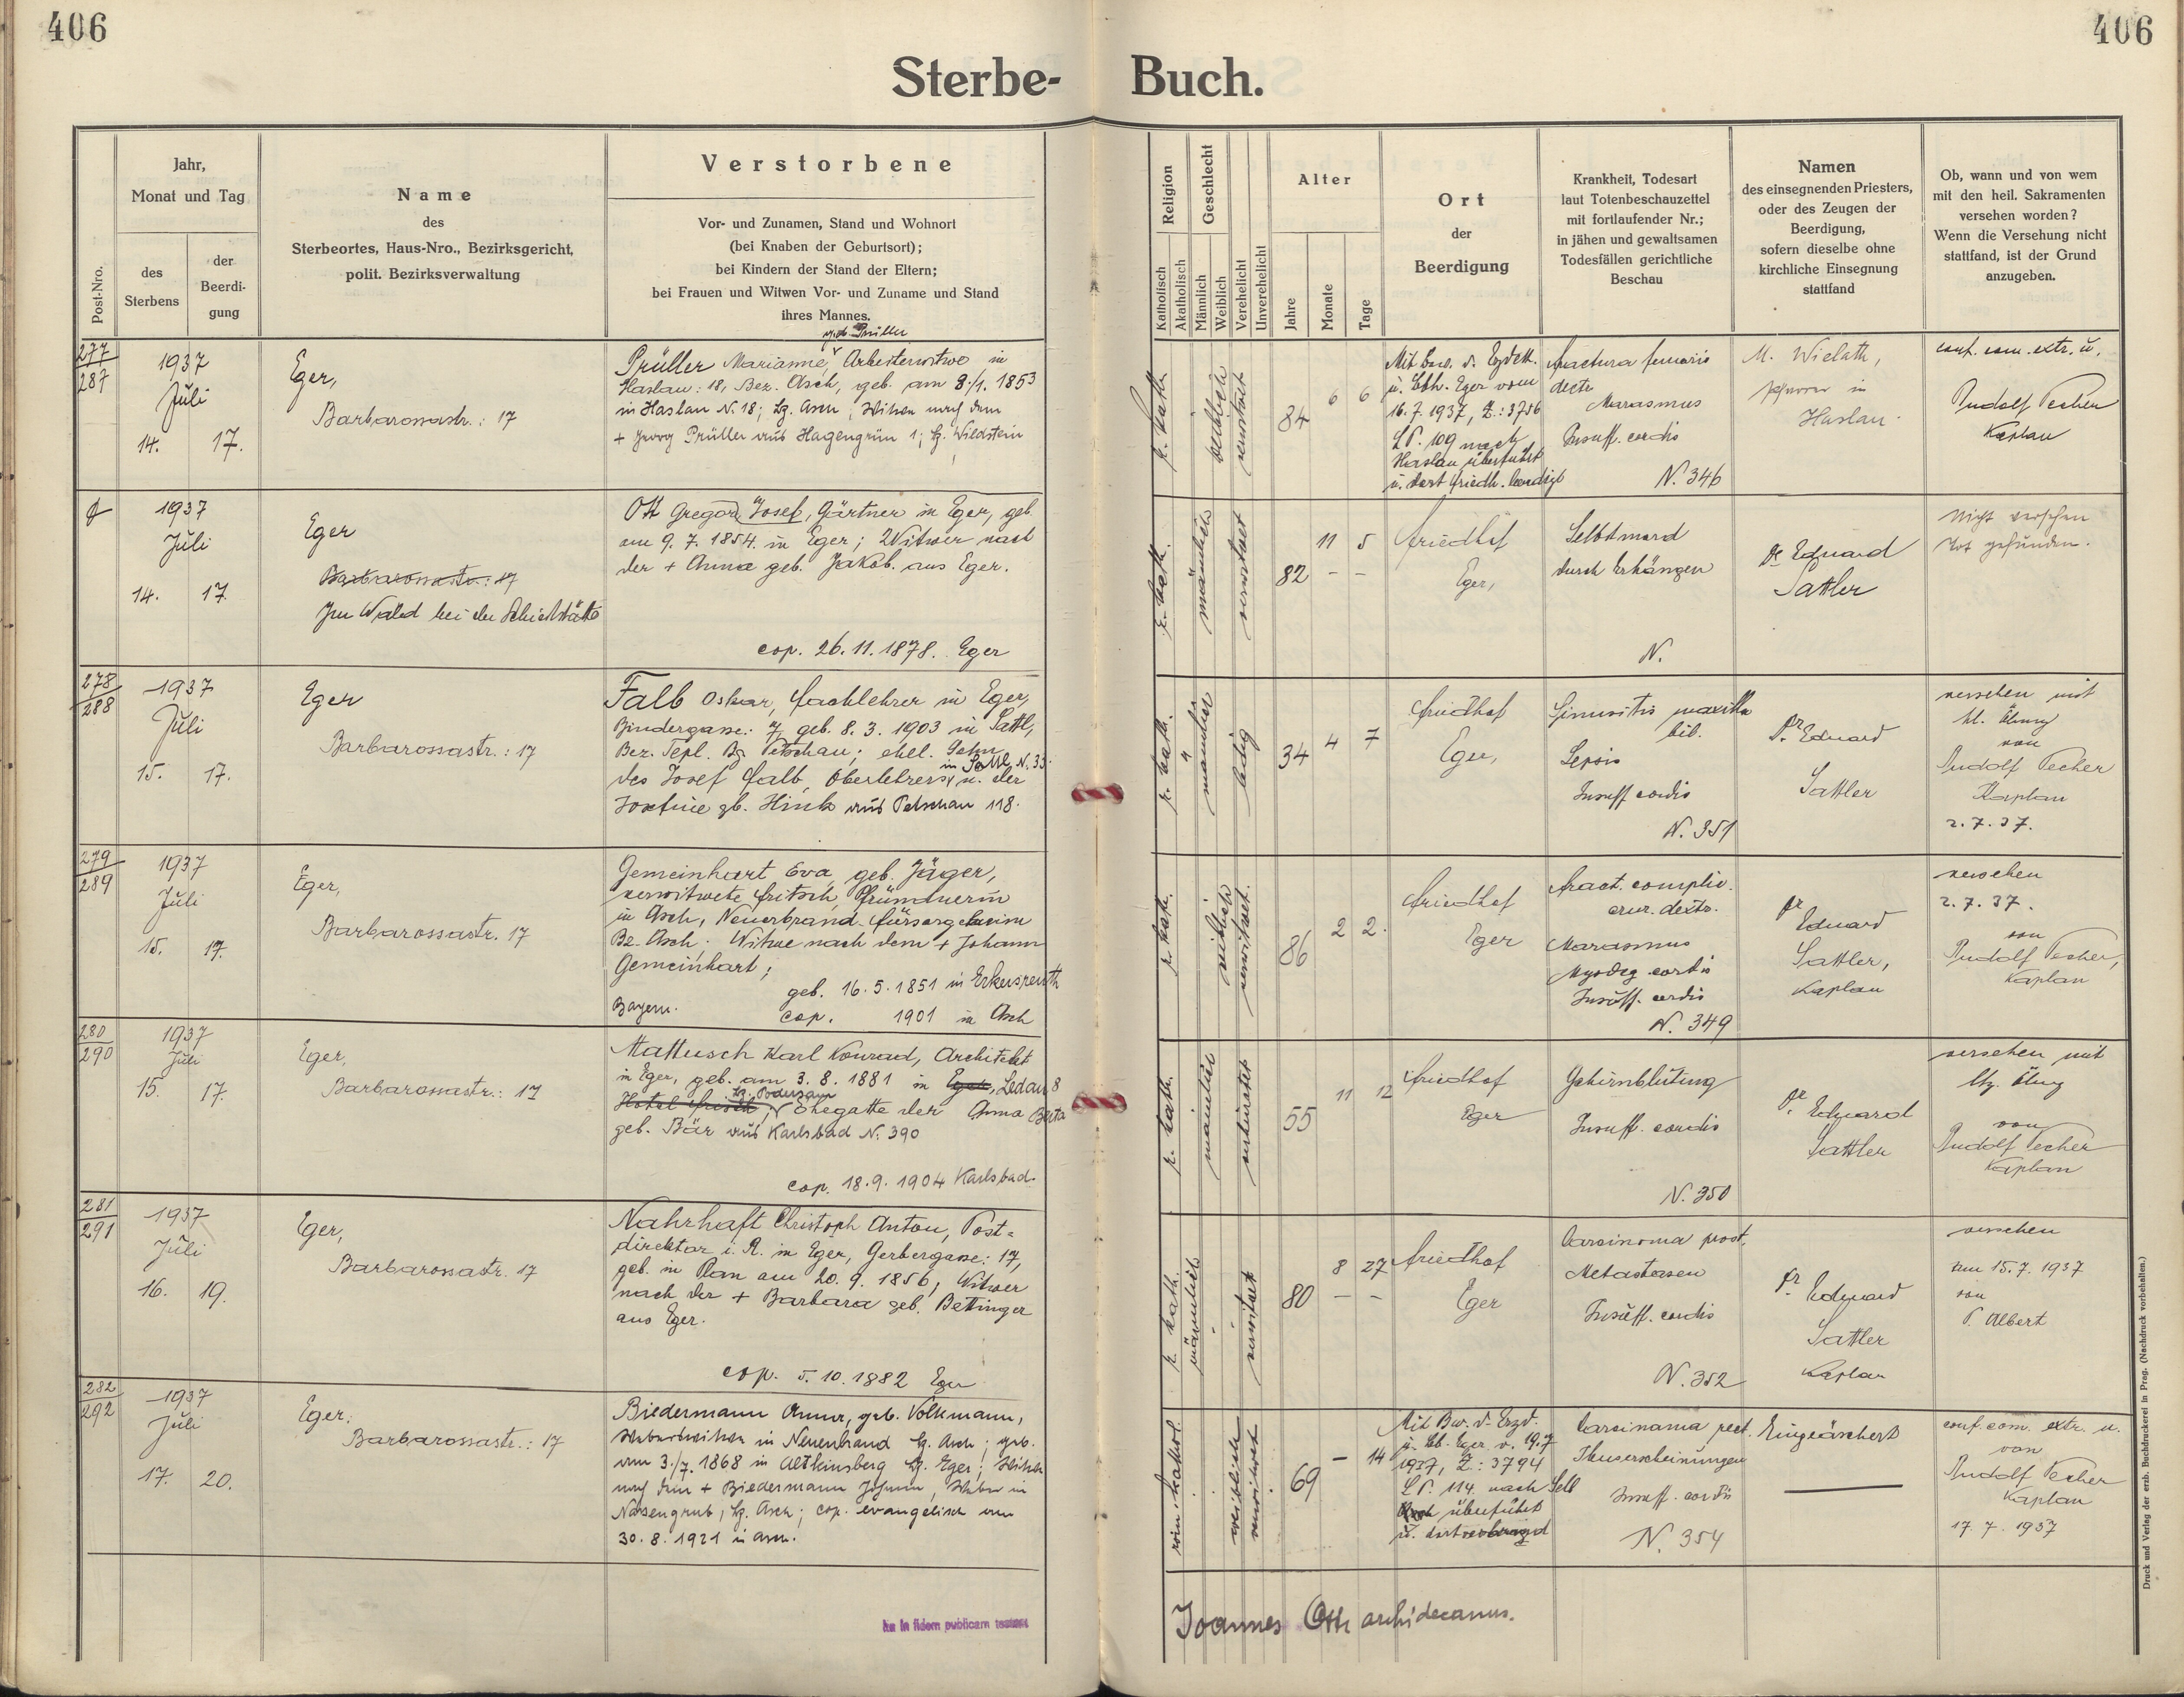 406
406
Sterbe- Buch.
Post-Nro.
Jahr,
Monat und Tag
des
Sterbens
der
Beerdi-
gung
Name
des
Sterbeortes, Haus-Nro., Bezirksgericht,
polit. Bezirksverwaltung
Verstorbene
Vor- und Zunamen, Stand und Wohnort
(bei Knaben der Geburtsort);
bei Kindern der Stand der Eltern;
bei Frauen und Witwen Vor- und Zuname und Stand
ihres Mannes.
Religion
Katholisch
Akatholisch
Geschlecht
Männlich
Weiblich
Verehelicht
Unverehelicht
Alter
Jahre
Monate
Tage
Ort
der
Beerdigung
Krankheit, Todesart
laut Totenbeschauzettel
mit fortlaufender Nr.;
in jähen und gewaltsamen
Todesfällen gerichtliche
Beschau
Namen
des einsegnenden Priesters,
oder des Zeugen der
Beerdigung,
sofern dieselbe ohne
kirchliche Einsegnung
stattfand
Ob, wann und von wem
mit den heil. Sakramenten
versehen worden?
Wenn die Versehung nicht
stattfand, ist der Grund
anzugeben.
277
287
1937
Juli
14. 17.
Eger,
Barbarossastr.: 17
geb. Prüller
Prüller Marianne Arbeiterswitwe in
Haslau: 18, Bez. Asch, geb. am 8./1. 1853
in Haslau N. 18; Lg. Asch; Witwe nach dem
+ Georg Prüller aus Hagengrün 1; Lg. Wildstein
r. kath.
weiblich
verwitwet
84 6 6
Mit Bew. d. Erzdek.
u. Ebh. Eger vom
16. 7. 1937, Z.: 3756
L.P. 109 nach
Haslau überführt
u. dort friedh. beerdigt
fractura femoris
dextr
Marasmus
Insuff. cordis
N. 346
M. Wielath,
Pfarrer in
Haslau.
conf. com. extr. u.
Rudolf Pecher
Kaplan
1937
Juli
14. 17.
Eger
Barbarossastr.: 17
Im Wald bei der Schießstätte
Ott Gregor Josef, Gärtner in Eger, geb.
am 9. 7. 1854. in Eger; Witwer nach
der + Anna geb. Jakob. aus Eger.
cop. 26. 11. 1878. Eger
r. kath.
männlich
verwitwet
82 11 5
Friedhof
Eger,
Selbstmord
durch Erhängen
N.
Dr. Eduard
Sattler
Nicht versehen
tot gefunden.
278
288
1937
Juli
15. 17.
Eger
Barbarossastr.: 17
Falb Oskar, Fachlehrer in Eger,
Bindergasse: 7, geb. 8. 3. 1903 in Sattl,
Bez. Tepl. Bg. Petschau; ehel. Sohn
in Sattl N. 33.
des Josef Falb, Oberlehrers, u. der
Josefine gb. Hink aus Petschau 118.
r. kath.
männlich
ledig
34 4 7
Friedhof
Eger,
Sinusitis maxilla
bil.
Sepsis
Insuff cordis
N. 351
Dr. Eduard
Sattler
versehen mit
hl. Ölung
von
Rudolf Pecher
Kaplan
2. 7. 37.
279
289
1937
Juli
15. 17.
Eger,
Barbarossastr. 17
Gemeinhart Eva, geb. Jäger,
verwitwete Fritsch, Pfründnerin
in Asch, Neuerbrand-Fürsorgeheim
Bz. Asch. Witwe nach dem + Johann
Gemeinhart;
geb. 16. 5. 1851 in Erkersreuth
Bayern.
cop. 1901 in Asch
r. kath.
weiblich
verwitwet.
86 2 2.
Friedhof
Eger
fract. complic.
crur. dextr.
Marasmus
Myodeg. cordis
Insuff. cordis
N. 349
Dr.
Eduard
Sattler,
Kaplan
versehen
2. 7. 37.
von
Rudolf Pecher,
Kaplan
280
290
1937
Juli
15. 17.
Eger,
Barbarossastr.: 17
Mattusch Karl Konrad, Architekt
in Eger, geb. am 3. 8. 1881 in Eger, Ledau 8
Lg. Podersam
Hotel Frisch, Ehegatte der Anna Berta
geb. Bär aus Karlsbad N. 390
cop. 18. 9. 1904 Karlsbad.
r. kath.
männlich
verheiratet
55 11 12
Friedhof
Eger
Gehirnblutung
Insuff. cordis
N. 350
Dr. Eduard
Sattler
versehen mit
hlg. Ölung
von
Rudolf Pecher
Kaplan
281
291
1937
Juli
16. 19.
Eger,
Barbarossastr. 17
Nahrhaft Christoph Anton, Post-
direktor i. R. in Eger, Gerbergasse: 17,
geb. in Plan am 20. 9. 1856, Witwer
nach der + Barbara geb. Bettinger
aus Eger.
cop. 5. 10. 1882 Eger
r. kath.
männlich
verwitwet
80 8 27
Friedhof
Eger
Carcinoma prost.
Metastasen
Insuff. cordis
N. 352
Dr. Eduard
Sattler
Kaplan
versehen
am 15. 7. 1937
von
P. Albert
282
292
1937
Juli
17. 20.
Eger,
Barbarossastr.: 17
Biedermann Anna, geb. Volkmann,
Weberswitwe in Neuenbrand Lg. Asch; geb.
am 3./7. 1868 in Altkinsberg Lg. Eger; Witwe
nach dem + Biedermann Johann, Weber in
Nassengrub, Lg. Asch; cop. evangelisch am
30. 8. 1921 in Asch.
röm. kathol.
weiblich
verwitwet
69 - 14
Mit Bew. d. Erzd.
u. Eb. Eger v. 19. 7
1937, Z.: 3794
L.P. 114. nach Selb
überführt
u. dort verbrannt
Carcinoma rect.
Ileuserscheinungen
Insuff. cordis
N. 354
Eingeäschert
conf. com. extr. u.
von
Rudolf Pecher
Kaplan
17. 7. 1937
in fidem publicam
Joannes Ott archidecanus.
Druck und Verlag der erzb. Buchdruckerei in Prag. (Nachdruck vorbehalten.)